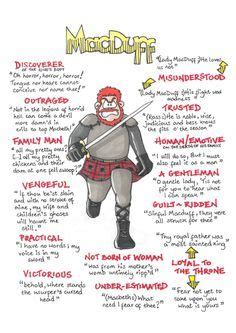 MacDuff
DISCOVERER
OF THE KING'S BODY
"Oh horror, horror, horror!
Tongue nor heart cannot
conceive nor name thee!"
OUTRAGED
"Not in the legions of horrid
hell can come a devil
more damn'd in
evils to top Macbeth!"
FAMILY MAN
"all my pretty ones?
(...) all my pretty
chickens and their
dam at one fell swoop?"
VENGEFUL
"If thou be'st slain
and with no stroke
of mine, my wife and
children's ghosts
will haunt me
still."
PRACTICAL
"I have no words: my
voice is in my
sword"
VICTORIOUS
"behold, where stands
the usurper's cursed
head"
NOT BORN OF WOMAN
"was from his mother's
womb untimely ripp'd"
UNDER-ESTIMATED
(Macbeth:) "What
need I fear of thee?"
"(Lady MacDuff:) He loves
us not"
MISUNDERSTOOD
(Lady MacDuff:) "His flight was
madness"
TRUSTED
"(Ross:) He is noble, wise,
judicious and best knows
the fits o' the season"
HUMAN/EMOTIVE
"I will do so, but I must
also feel it as a man"
A GENTLEMAN
"O gentle lady, 'tis not
for you to hear what
I can speak"
GUILT-RIDDEN
"Sinful Macduff, they were
all struck for thee"
"Thy royal father was
a most sainted king"
LOYAL TO
THE THRONE
"Fear not yet to
take upon you
what is yours"